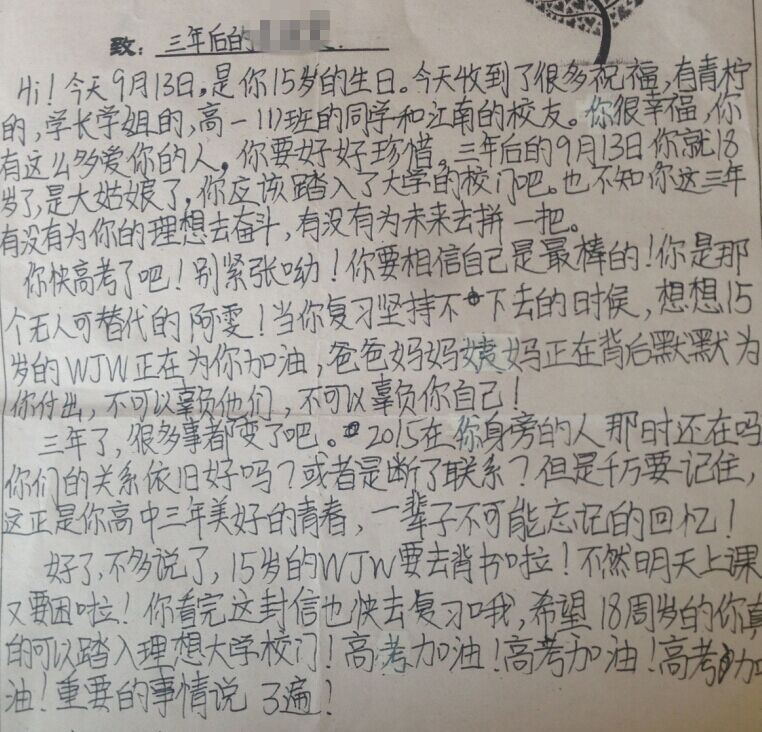 致：三年后的
Hi！今天9月13日，是你15岁的生日。今天收到了很多祝福，有青柠
的，学长学姐的，高一111班的同学和江南的校友。你很幸福，你
有这么多爱你的人。你要好好珍惜。三年后的9月13日你就18
岁了，是大姑娘了，你应该踏入了大学的校门吧。也不知你这三年
有没有为你的理想去奋斗，有没有为未来去拼一把。
你快高考了吧！别紧张呦！你要相信自己是最棒的！你是那
个无人可替代的阿雯！当你复习坚持不下去的时候，想想15
岁的WJW正在为你加油，爸爸妈妈姨妈正在背后默默为
你付出，不可以辜负他们，不可以辜负你自己！
三年了，很多事都变了吧。2015在你身旁的人那时还在吗
你们的关系依旧好吗？或者是断了联系？但是千万要记住，
这正是你高中三年美好的青春，一辈子不可能忘记的回忆！
好了，不多说了，15岁的WJW要去背书啦！不然明天上课
又要困啦！你看完这封信也快去复习哦，希望18周岁的你真
的可以踏入理想大学校门！高考加油！高考加油！高考加
油！重要的事情说3遍！